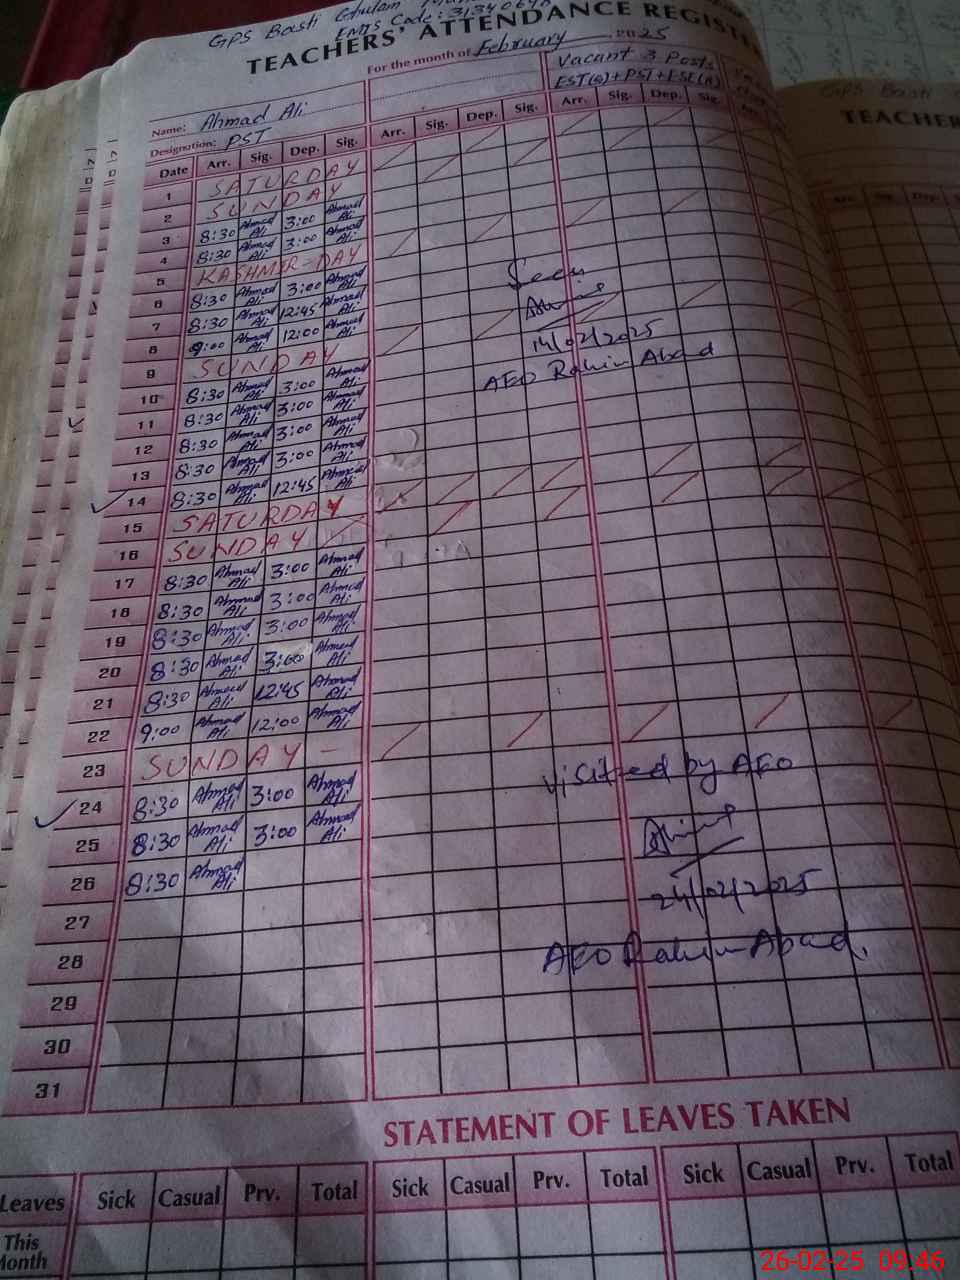 GPS Basti Ghulam
EMIS Code: 31340648
TEACHERS' ATTENDANCE REGIST
For the month of February, 2025
Vacant 3 Posts
EST(S)+PST+ESE(A)
Name: Ahmad Ali
Designation: PST
Date Arr. Sig. Dep. Sig. Arr. Sig. Dep. Sig. Arr. Sig. Dep. Sig. Arr.
1 SATURDAY
2 SUNDAY
3 8:30 Ahmad Ali 3:00 Ahmad Ali
4 8:30 Ahmad Ali 3:00 Ahmad Ali
5 KASHMIR-DAY
6 8:30 Ahmad Ali 3:00 Ahmad Ali
7 8:30 Ahmad Ali 12:45 Ahmad Ali
8 9:00 Ahmad Ali 12:00 Ahmad Ali
Seen
14/02/2025
AEO Rahim Abad
9 SUNDAY
10 8:30 Ahmad Ali 3:00 Ahmad Ali
11 8:30 Ahmad Ali 3:00 Ahmad Ali
12 8:30 Ahmad Ali 3:00 Ahmad Ali
13 8:30 Ahmad Ali 3:00 Ahmad Ali
14 8:30 Ahmad Ali 12:45 Ahmad Ali
15 SATURDAY
16 SUNDAY
17 8:30 Ahmad Ali 3:00 Ahmad Ali
18 8:30 Ahmad Ali 3:00 Ahmad Ali
19 8:30 Ahmad Ali 3:00 Ahmad Ali
20 8:30 Ahmad Ali 3:00 Ahmad Ali
21 8:30 Ahmad Ali 12:45 Ahmad Ali
22 9:00 Ahmad Ali 12:00 Ahmad Ali
23 SUNDAY -
24 8:30 Ahmad Ali 3:00 Ahmad Ali
25 8:30 Ahmad Ali 3:00 Ahmad Ali
26 8:30 Ahmad Ali
27
28
29
30
31
Visited by AEO
24/02/2025
AEO Rahim Abad.
STATEMENT OF LEAVES TAKEN
Leaves Sick Casual Prv. Total Sick Casual Prv. Total Sick Casual Prv. Total
This Month
GPS Basti
TEACHER
26-02-25 09:46